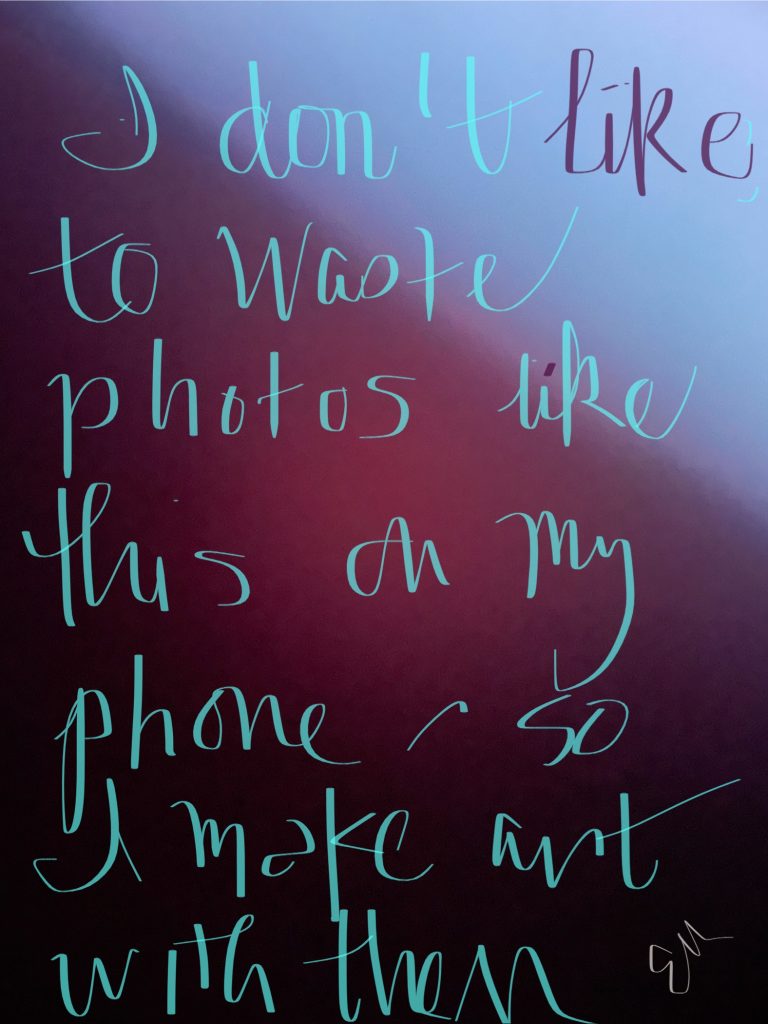 I don't like
to waste
photos like
this on my
phone - so
I make art
with them
EM